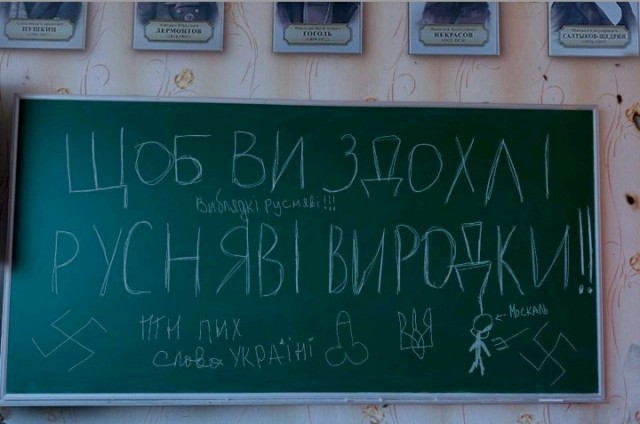 ПУШКИН
ЛЕРМОНТОВ
ГОГОЛЬ
НЕКРАСОВ
САЛТЫКОВ-ЩЕДРИН
ЩОБ ВИ ЗДОХЛІ
Виблядкі русняві!!!
РУСНЯВІ ВИРОДКИ!!
← МОСКАЛЬ
ПТН ПИХ
слова УКРАІНІ